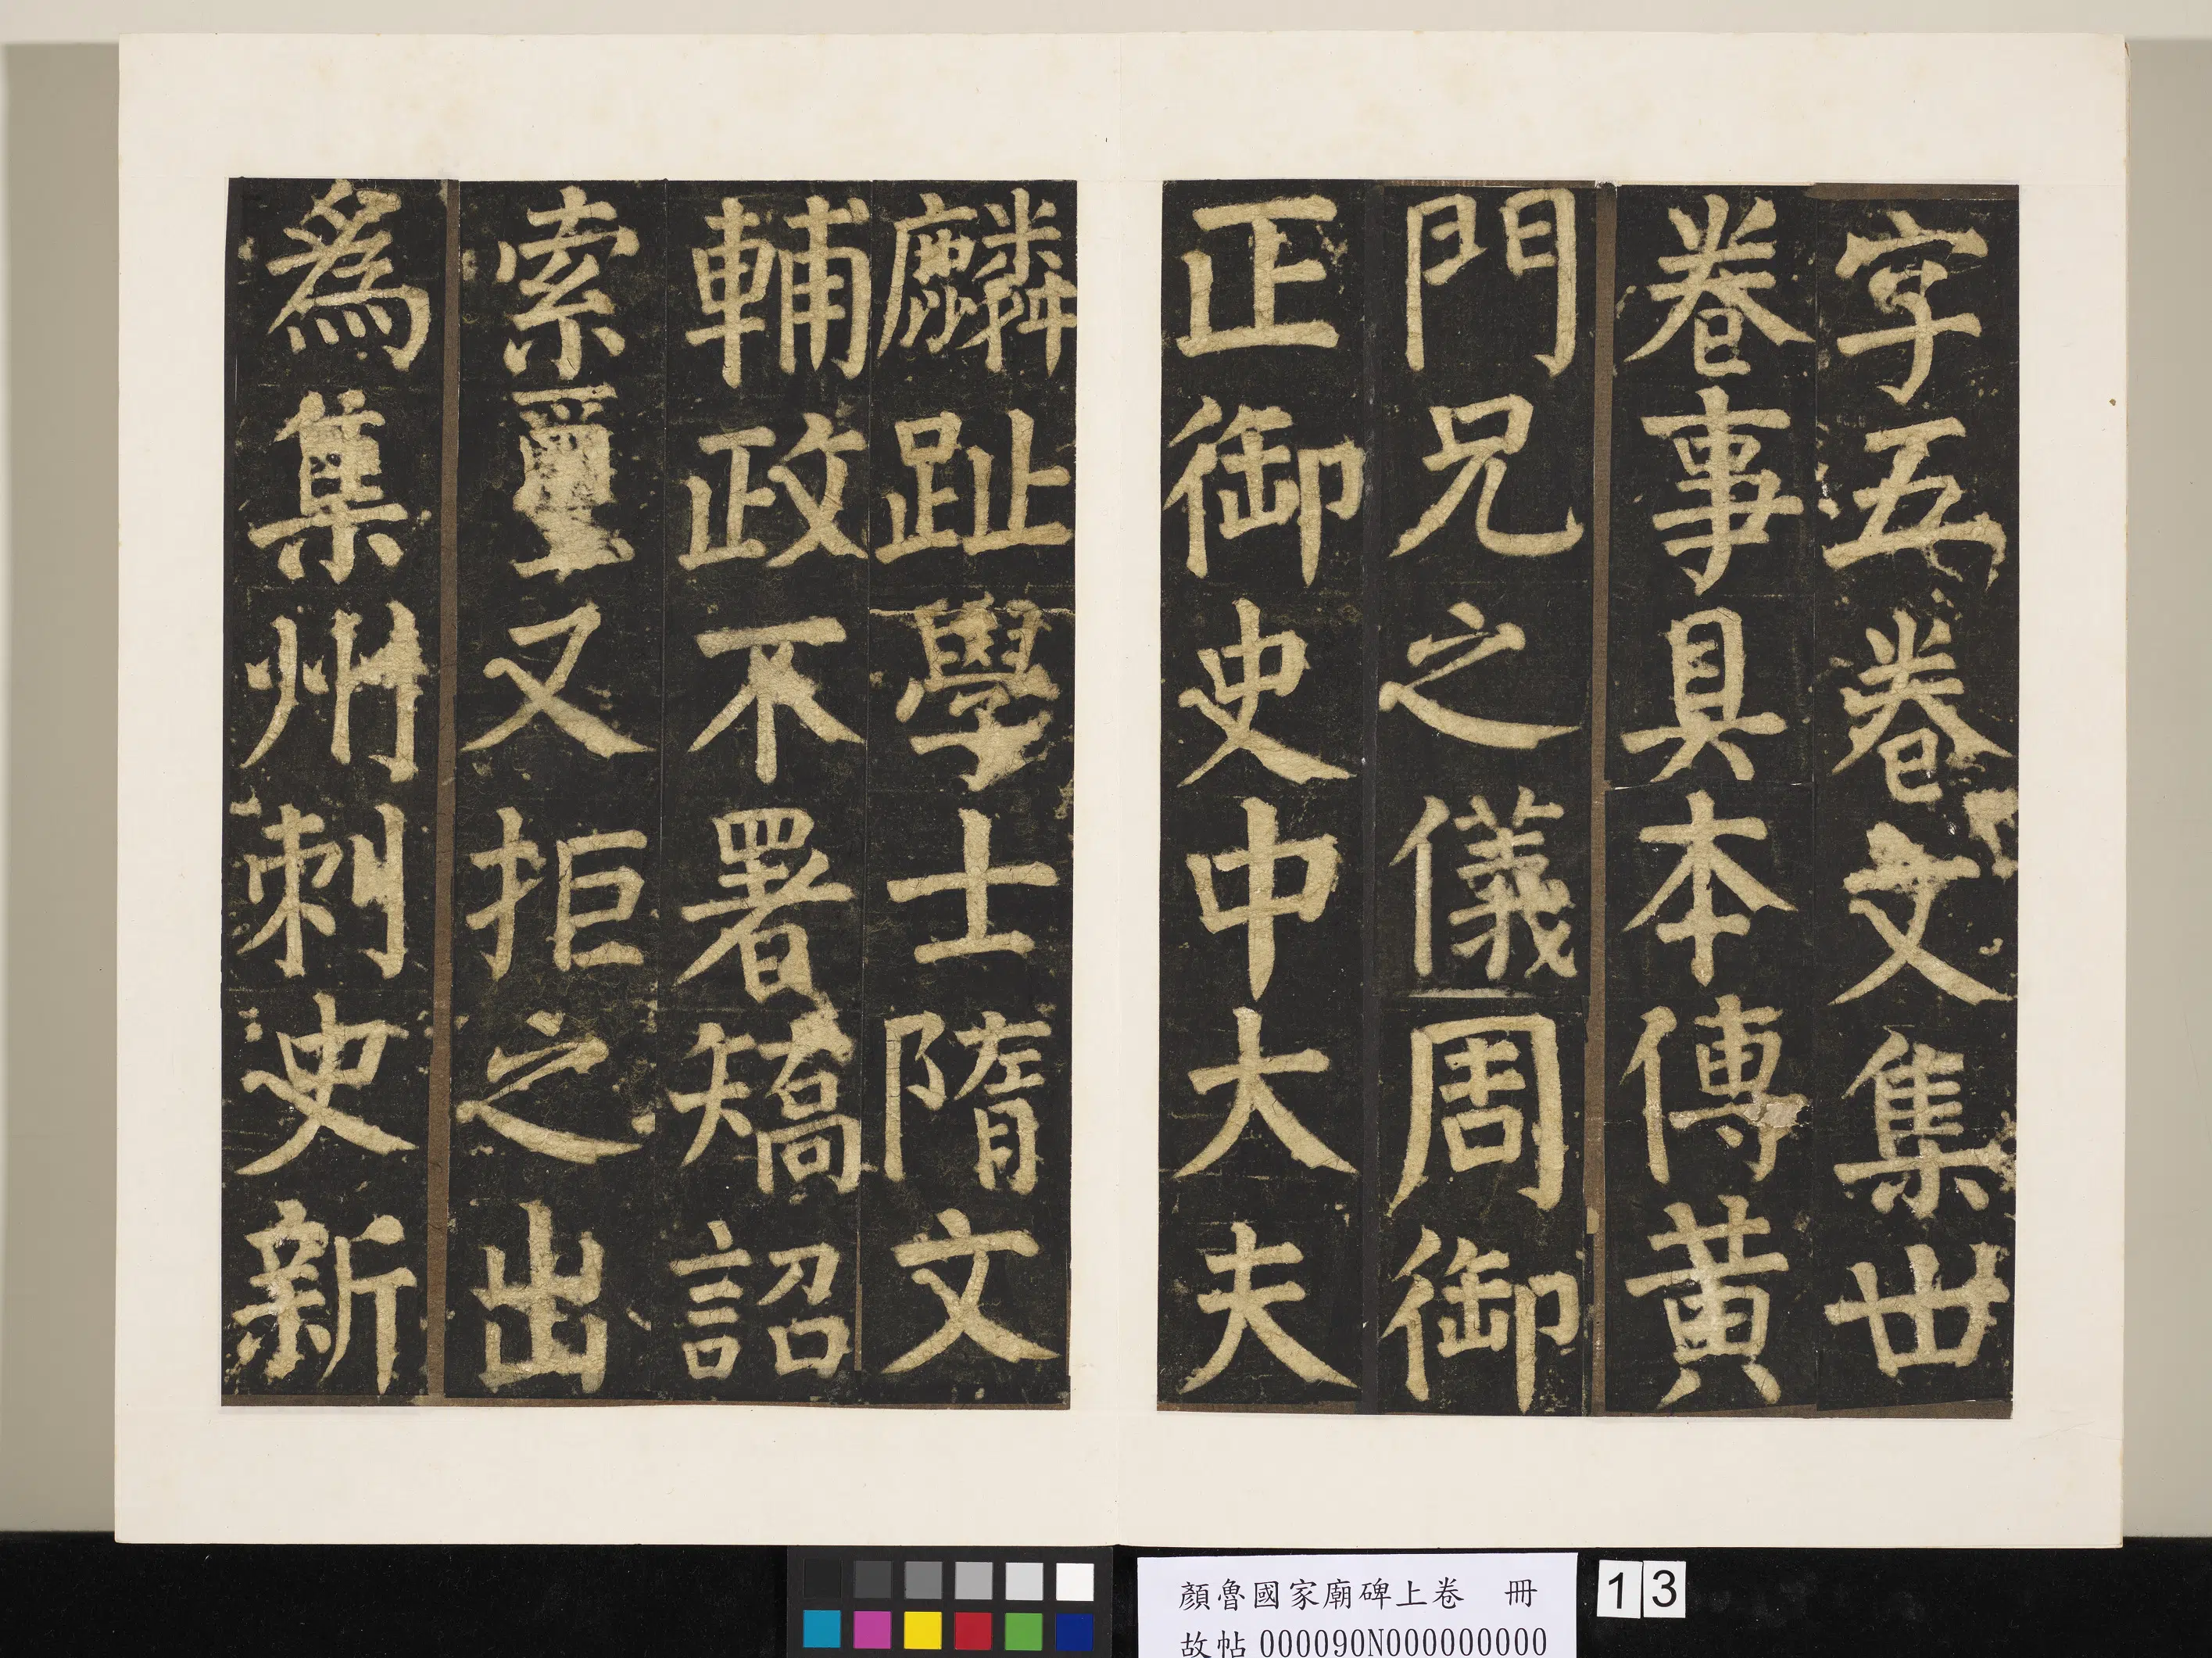 字五卷文集卅
卷事具本傳黃
門兄之儀周御
正御史中大夫
麟趾學士隋文
輔政不署矯詔
索璽又拒之出
為集州刺史新
顏魯國家廟碑上卷 冊
故帖000090N000000000
13